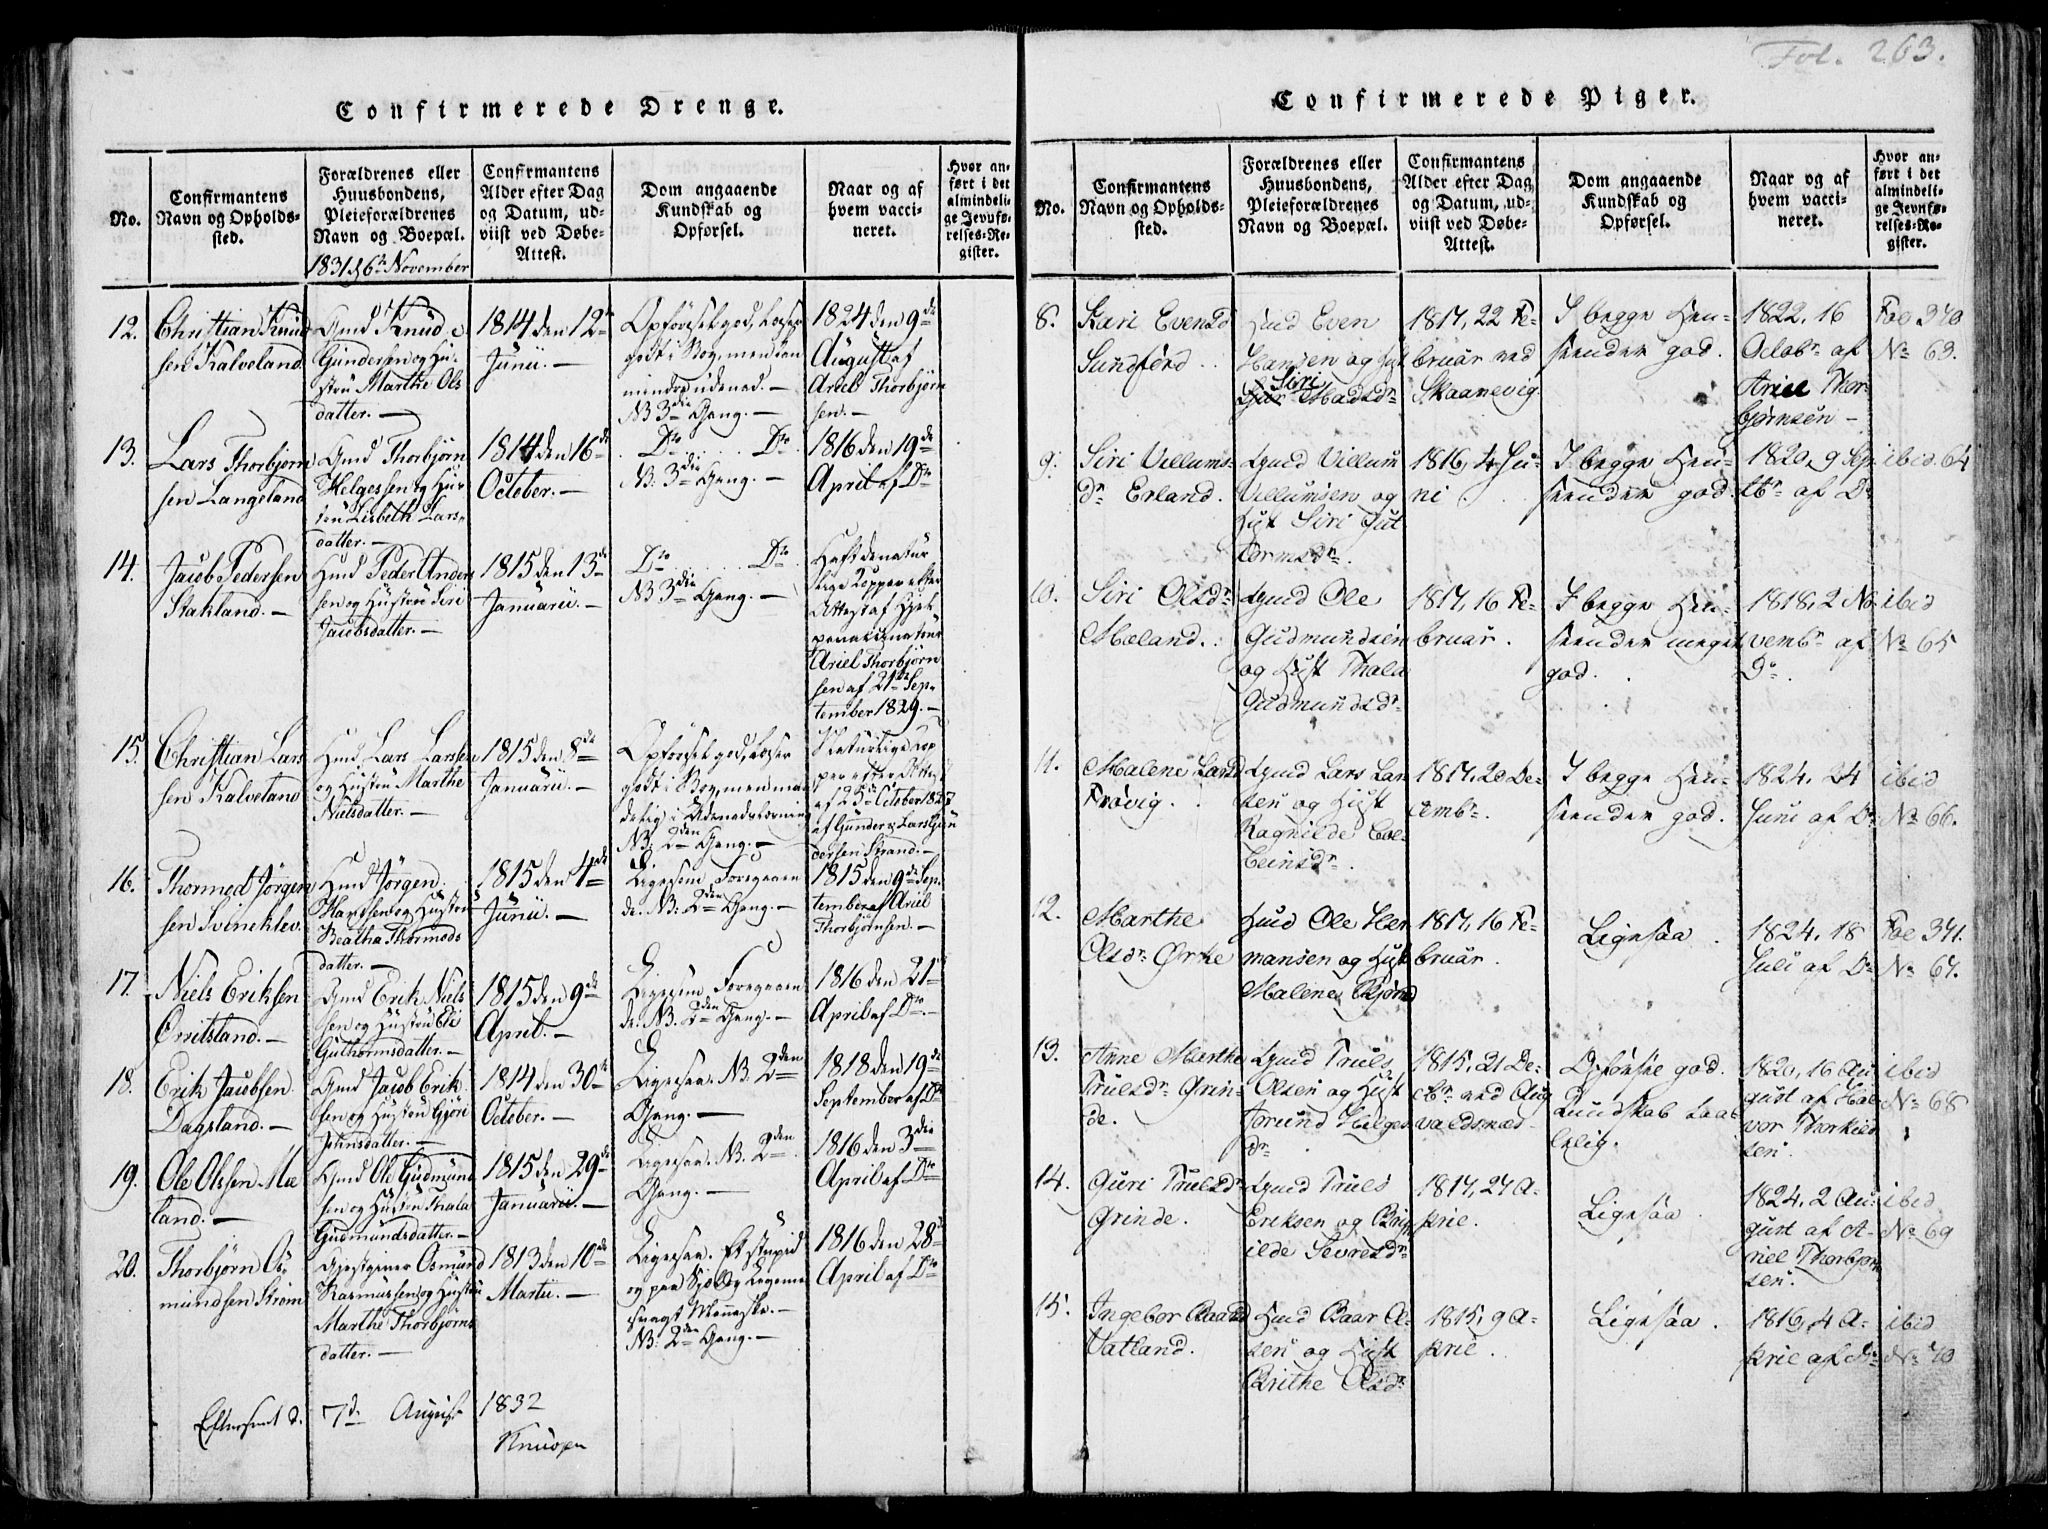 Fol. 263.
Confirmerede Drenge.
No.
Confirmantens
Navn og Opholds-
sted.
Forældrenes eller
Huusbondens,
Pleieforældrenes
Navn og Boepæl.
1831 d 6te November
Confirmantens
Alder efter Dag
og Datum, ud-
viist ved Døbe-
Attest.
Dom angaaende
Kundskab og
Opførsel.
Naar og af
hvem vacci-
neret.
Hvor an-
ført i det
almindeli-
ge Jevnfø-
relses-Re-
gister.
12.
Christian Knud
sen Kalveland
Gmd Knud
Gundersen og Hu-
stru Marthe Ols
datter. —
1814 den 12te
Junii. —
Opførsel god, Læser
godt i Bog, men kan
mindre udenad. —
NB 3die Gang. —
1824 den 9de
August af
Ariel Thorbjørn
sen. —
13.
Lars Thorbjørn
sen Langeland
Gmd Thorbjørn
Helgessen og Hu-
stru Lisbeth Lars-
datter. —
1814 den 16de
October. —
Do Do
NB. 3die Gang. —
1816 den 19de
April af Do
14.
Jacob Pedersen
Stakland. —
Hmd Peder Anders
sen og Hustru Siri
Jacobsdatter. —
1815 den 13de
Januarii. —
Do Do
NB 3die Gang. —
Haft de natur
lige Kopper efter
Attest af
Ariel Thorbjørn
sen af 21de Sep-
tember 1829. —
15.
Christian Lars
sen Kalveland
Hmd Lars Larssen
og Hustru Marthe
Nielsdatter. —
1815 den 8de
Januarii. —
Opførsel god, Læser
godt i Bog, men maa
delig i Udenadslæsning
NB. 2den Gang. —
Naturlige Kop
per efter Attest
af 25de October 1827
af Gunder & Lars Gun
dersen Strand. —
16.
Thormod Jørgen
sen Svineklev.
Hmd Jørgen
Hanssen og Hustru
Beatha Thormods
datter. —
1815 den 4de
Junii. —
Ligesom Foregaaen
de. NB. 2den Gang. —
1815 den 9de Sep-
tember af Ariel
Thorbjørnsen. —
17.
Niels Eriksen
Orritsland. —
Gmd Erik Niels
sen og Hustru Eli
Guthormsdatter. —
1815 den 9de
April. —
Ligesom Foregaaen
de. NB. 2den Gang. —
1816 den 21de
April af Do. —
18.
Erik Jacobsen
Dagsland. —
Gmd Jacob Erik
sen og Hustru Gjøri
Johnsdatter. —
1814 den 30te
October. —
Ligesaa. NB. 2den
Gang. —
1818 den 19de
September af Do
19.
Ole Olssen Mæ
land. —
Hmd Ole Gudmund
sen og Hustru Thala
Gudmundsdatter. —
1815 den 29de
Januarii. —
Ligesaa. NB. 2den
Gang. —
1816 den 3die
April af Do
20.
Thorbjørn Os-
mundsen Strøm
Gjestgiver Osmund
Rasmussen og Hustru
Marthe Thorbjørns
datter. —
1813 den 10de
Martii. —
Ligesaa. Et stupid
og paa Sjæl og Legeme
svagt Menneske. —
NB. 2den Gang. —
1816 den 28de
April af Do
Efterseet d. 7de August 1832
Confirmerede Piger.
No.
Confirmantens
Navn og Opholds-
sted.
Forældrenes eller
Huusbondens,
Pleieforældrenes
Navn og Boepæl.
Confirmantens
Alder efter Dag
og Datum, ud-
viist ved Døbe-
Attest.
Dom angaaende
Kundskab og
Opførsel.
Naar og af
hvem vacci-
neret.
Hvor an-
ført i det
almindeli-
ge Jevnfø-
relses-Re-
gister.
8.
Kari Evensd
Sundførd
Hmd Even
Hansen og Hust
Siri Madsdr
1817, 22 Fe-
bruar ved
Skaanevig.
I begge Hen-
seender god.
1822, 16
Octobr af
Ariel Thor-
bjørnsen —
Fol 340
No 63.
9.
Siri Villums-
dr Erland.
Gmd Villum
Villumsen og
Hust Siri Gut
ormsdr.
1816, 4 Ju-
ni
I begge Hen-
seender god.
1820, 9 Sep-
tbr af Do
ibid 64
10.
Siri Olsdr
Mæland.
Gmd Ole
Gudmundsen
og Hust Thala
Gudmundsdr
1817, 16 Fe-
bruar.
I begge Hen-
seender meget
god.
1818, 2 No-
vembr af
Do.
ibid
No 65
11.
Malene Larsd
Frøvig.
Gmd Lars Lar-
sen og Hust
Ragnilde Col-
beinsdr.
1817, 20 De-
cembr.
I begge Hen-
seender god.
1824, 24
Juni af Do
ibid
No 66.
12.
Marthe
Olsdr Ørke
Hmd Ole Her-
mansen og Hust
Malene Bjørnd
1817, 16 Fe-
bruar.
Ligesaa.
1824, 18
Juli af Do
Fol 341.
No 67.
13.
Anne Marthe
Trulsdr Grin-
de.
Gmd Truls
Olsen og Hust
Jorund Helges
dr
1815, 21 De-
cbr ved Aug
valdsnæs
Opførsel god.
Kundskab taale-
lig.
1820, 16 Au-
gust af Hal-
vor Thorkild
sen.
ibid
No 68
14.
Guri Trulsdr
Grinde.
Gmd Truls
Eriksen og Brin
ilde Sevresdr
1817, 27 A-
pril.
Ligesaa.
1824, 2 Au-
gust af A-
riel Thorbjørn
sen.
ibid
No 69
15.
Ingebor Baardd
Vatland.
Hmd Baar A-
sen og Hust
Brithe Olsdr
1815, 9 A-
pril.
Ligesaa.
1816, 4 A-
pril af Do
ibid
No 70